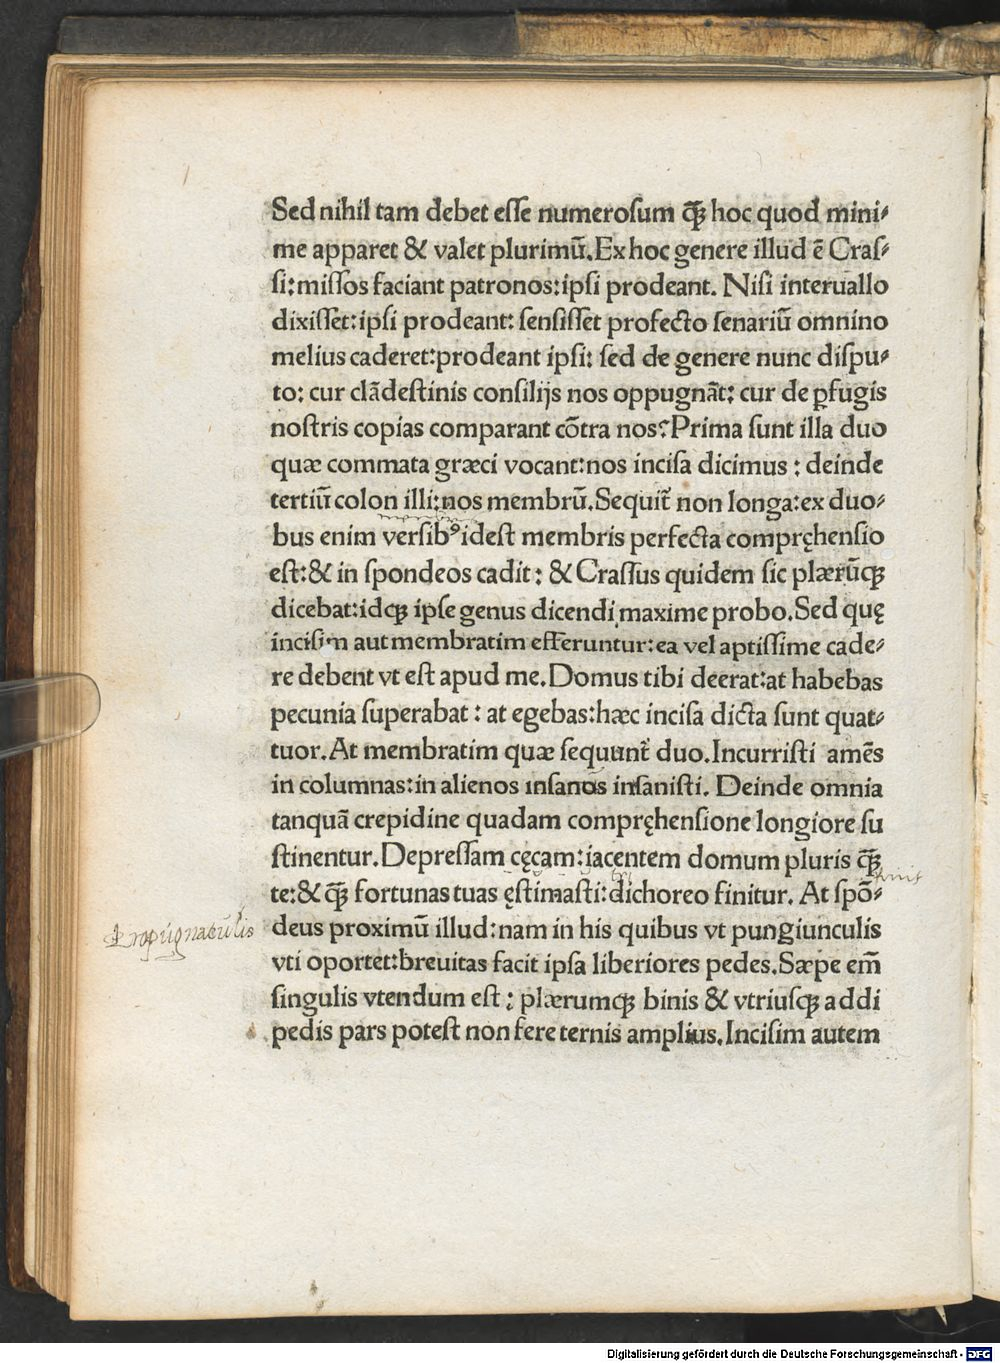 Sed nihil tam debet eſſe numeroſum q̃ꝫ hoc quod mini⸗
me apparet & valet plurimū. Ex hoc genere illud ē Craſ⸗
ſi: miſſos faciant patronos: ipſi prodeant. Niſi interuallo
dixiſſet: ipſi prodeant: ſenſiſſet profecto ſenariū omnino
melius caderet: prodeant ipſi: ſed de genere nunc diſpu⸗
to: cur clādeſtinis conſilijs nos oppugnāt: cur de ꝑfugis
noſtris copias comparant cōtra nos? Prima ſunt illa duo
quæ commata græci vocant: nos inciſa dicimus: deinde
tertiū colon illi: nos membrū. Sequit̃ non longa: ex duo⸗
bus enim verſibꝰ ideſt membris perfecta compręhenſio
eſt: & in ſpondeos cadit: & Craſſus quidem ſic plærūqꝫ
dicebat: idqꝫ ipſe genus dicendi maxime probo. Sed quę
inciſim aut membratim efferuntur: ea vel aptiſſime cade⸗
re debent vt eſt apud me. Domus tibi deerat: at habebas
pecunia ſuperabat: at egebas: hæc inciſa dicta ſunt quat⸗
tuor. At membratim quæ ſequunt̃ duo. Incurriſti amēs
in columnas: in alienos inſanos inſaniſti. Deinde omnia
tanquā crepidine quadam compręhenſione longiore ſu
ſtinentur. Depreſſam cęcam: iacentem domum pluris q̃ꝫ
te: & q̃ꝫ fortunas tuas ęſtimaſti: dichoreo finitur. At ſpō⸗
Propugnaculis
deus proximū illud: nam in his quibus vt pungiunculis
vti oportet: breuitas facit ipſa liberiores pedes. Sæpe em̄
ſingulis vtendum eſt: plærumqꝫ binis & vtriuſqꝫ addi
pedis pars poteſt non fere ternis amplius. Inciſim autem
Digitalisierung gefördert durch die Deutsche Forschungsgemeinschaft - DFG